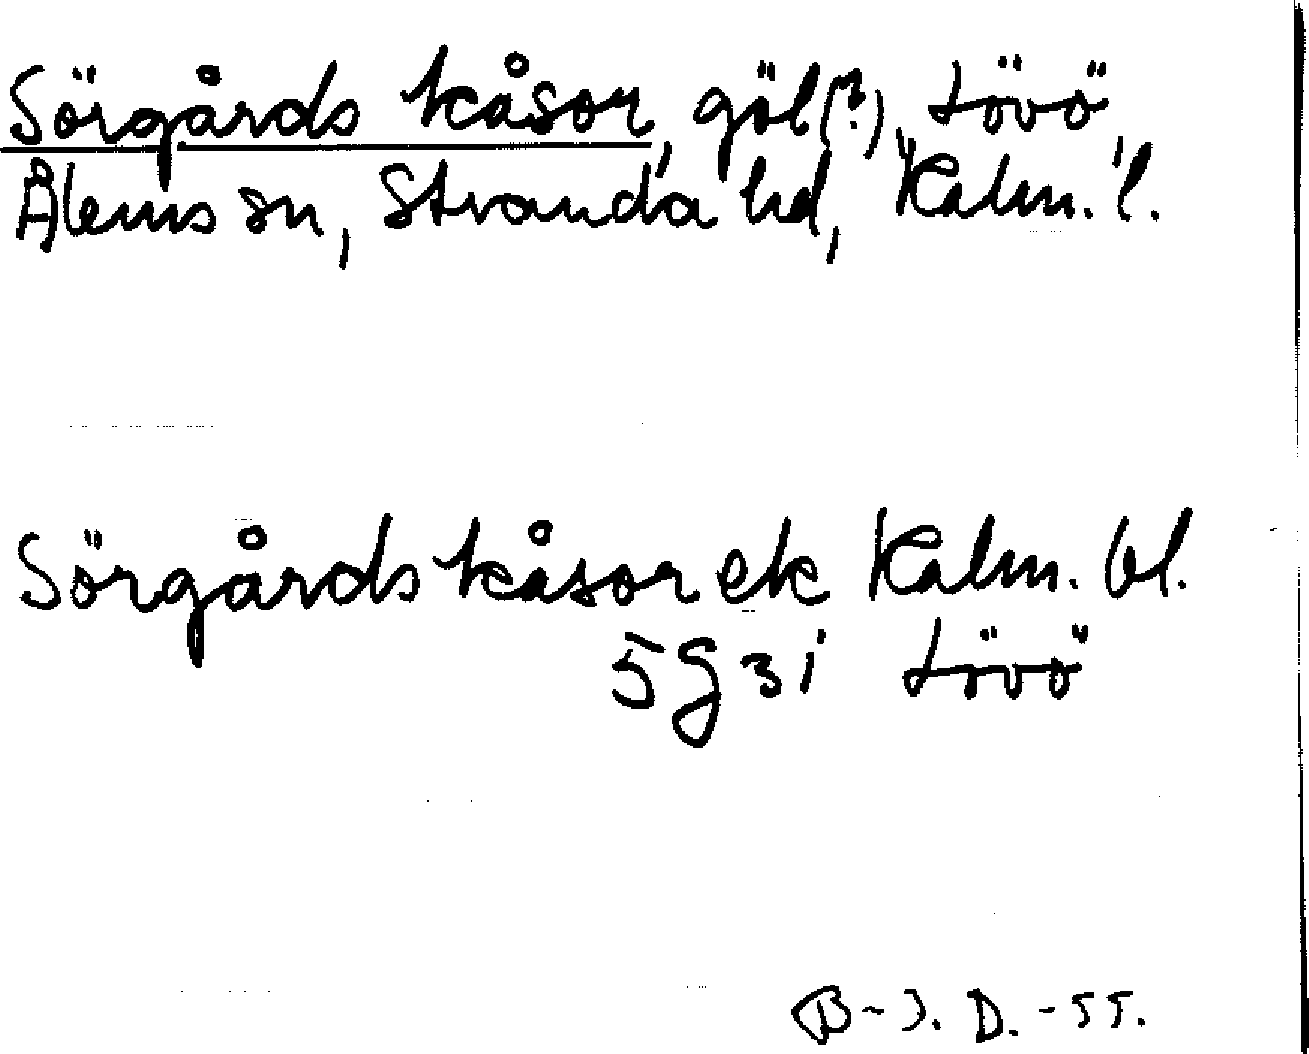 Sörgårds kåsor, göl(?), Lövö,
Ålems sn, Stranda hd, Kalm. l.
Sörgårdskåsor ek Kalm. bl.
5 g 3 i Lövö
B-J. D. -55.